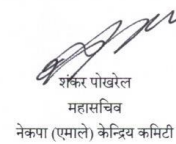 शंकर पोखरेल
महासचिव
नेकपा (एमाले) केन्द्रिय कमिटी